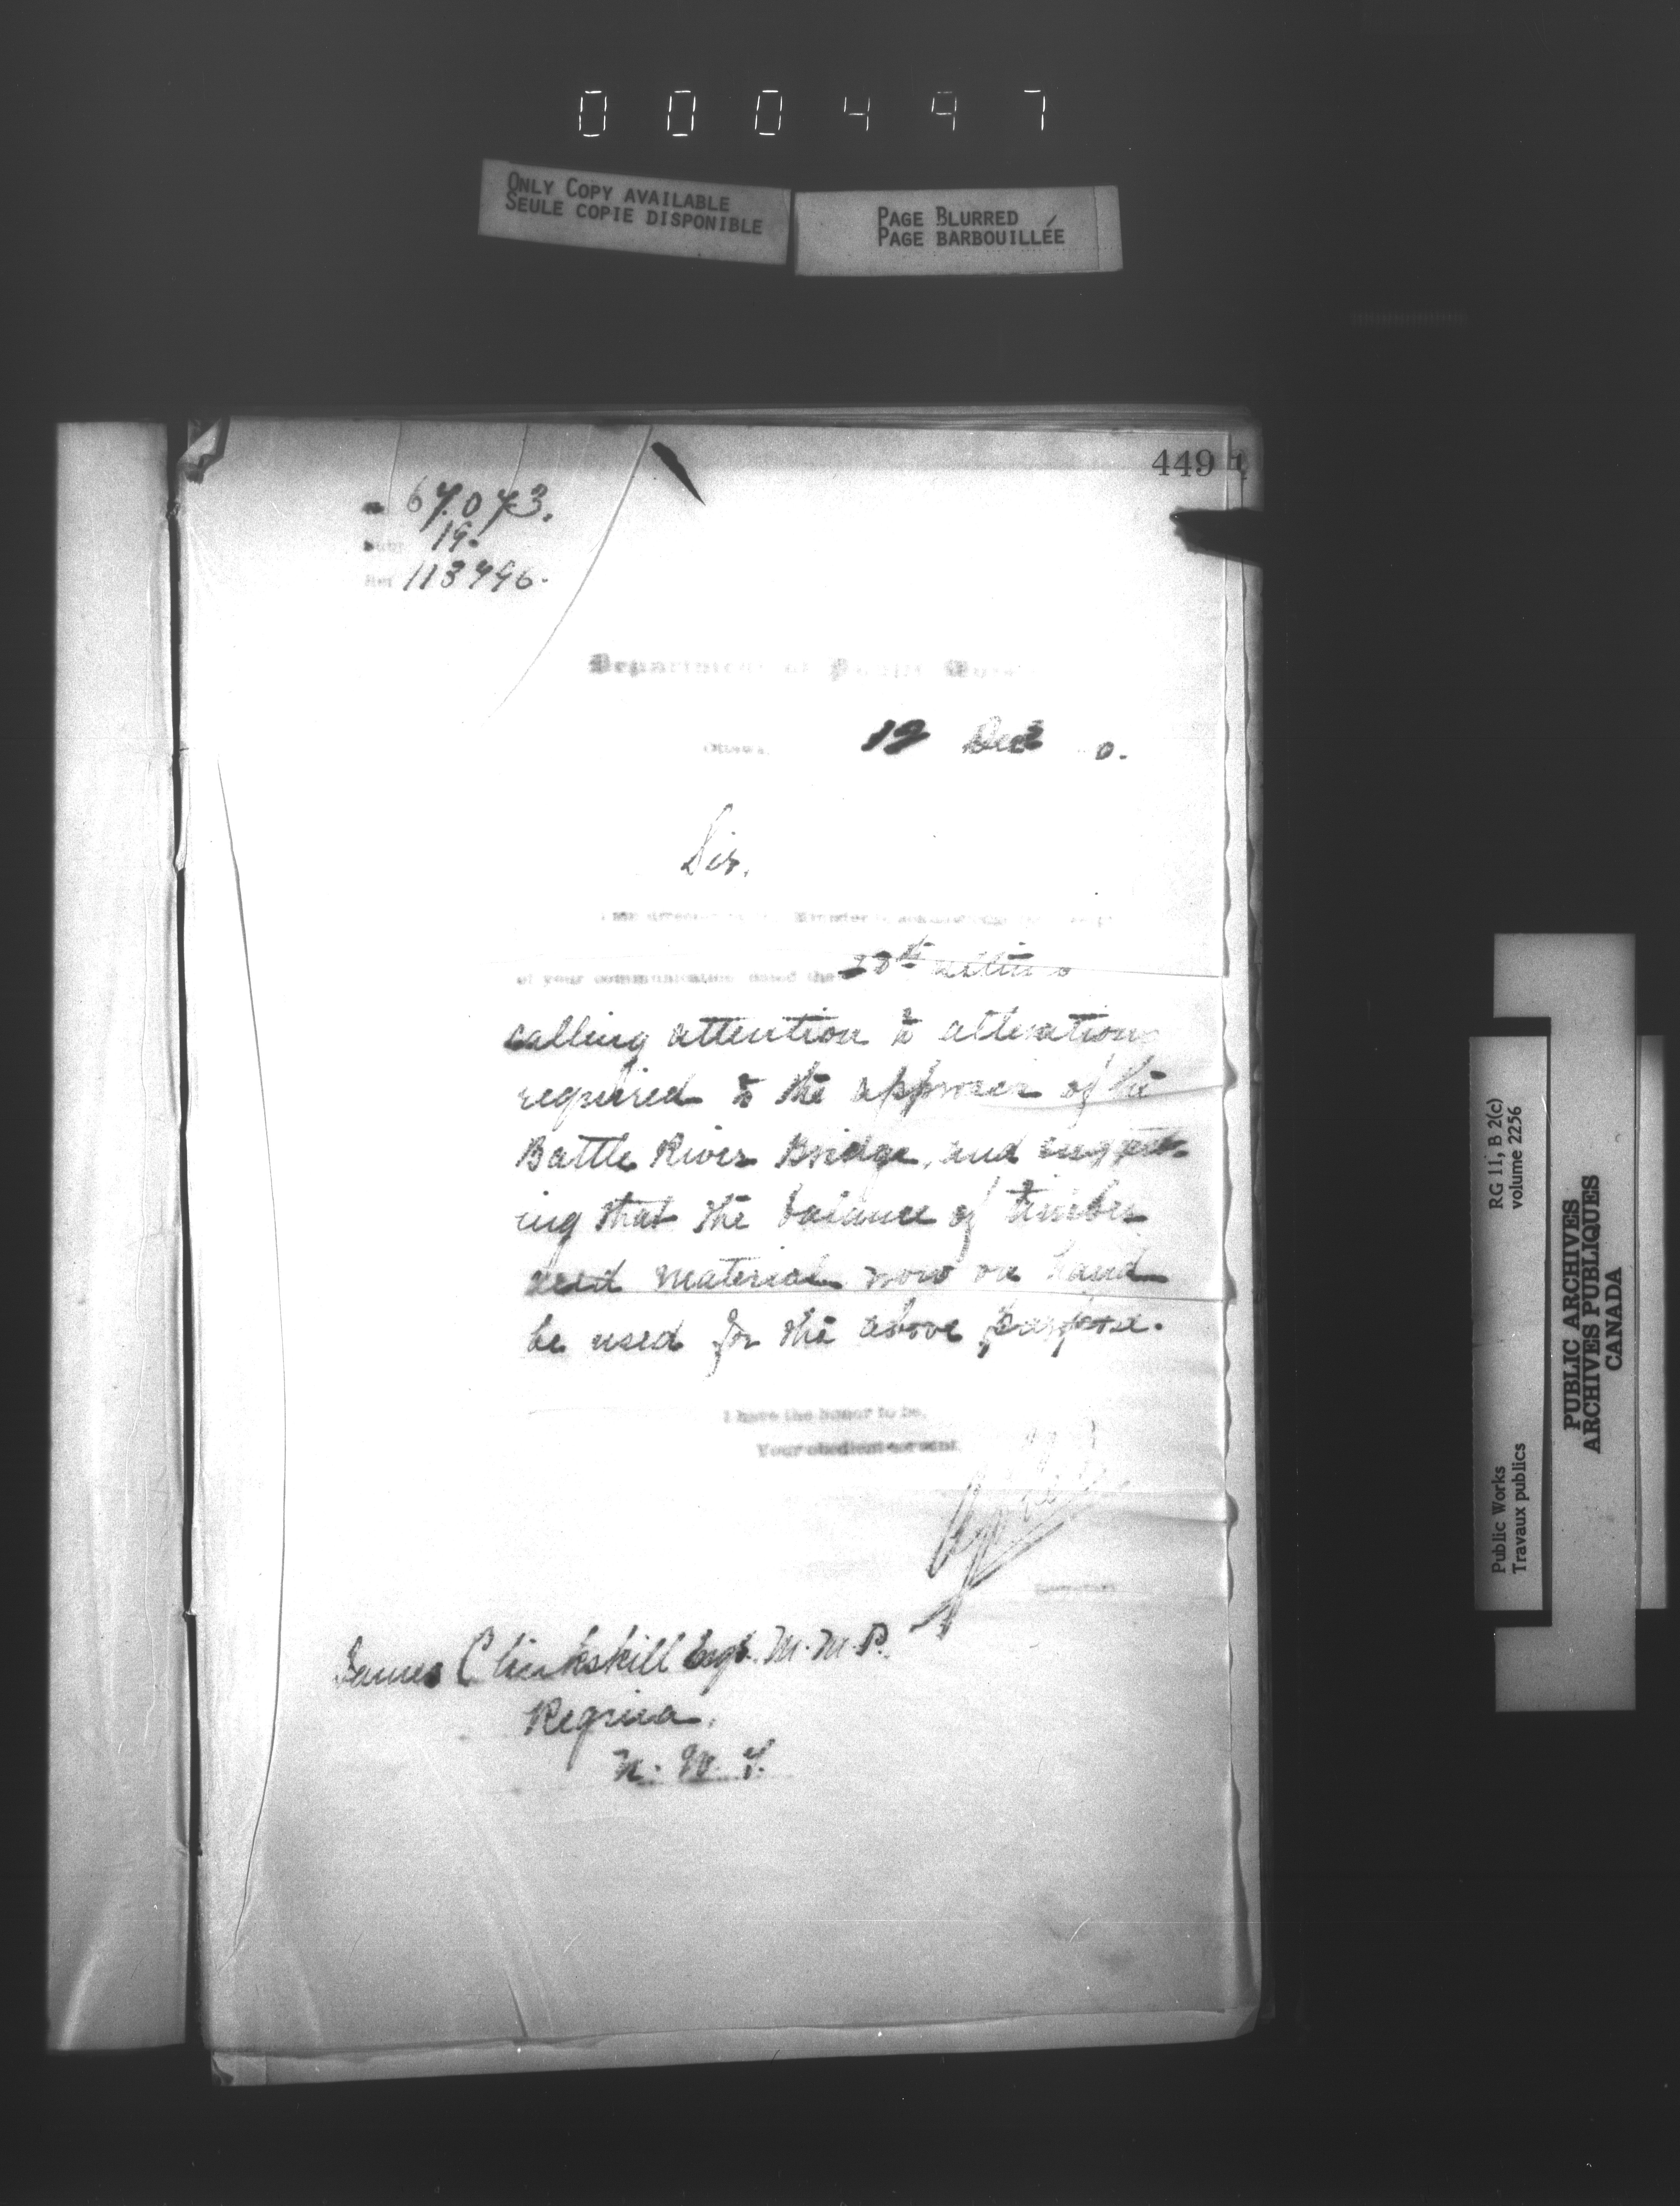 000497
ONLY COPY AVAILABLE
SEULE COPIE DISPONIBLE
PAGE BLURRED
PAGE BARBOUILLÉE
449
67.073.
Subj. 19.
Ref 113796.
Department of Public Works
Ottawa, 12 Decr 0.
Sir,
I am directed by the Minister to acknowledge the receipt
of your communication dated the 28th ultimo
calling attention to alterations
required to the approach of the
Battle River Bridge, and suggest-
ing that the balance of timber
and material now on hand
be used for the above purpose.
I have the honor to be,
Your obedient servant
Secretary
James Clinkskill Esqr. M.M.P.
Regina,
N. W. T.
Public Works
Travaux publics
RG 11, B 2(c)
volume 2256
PUBLIC ARCHIVES
ARCHIVES PUBLIQUES
CANADA